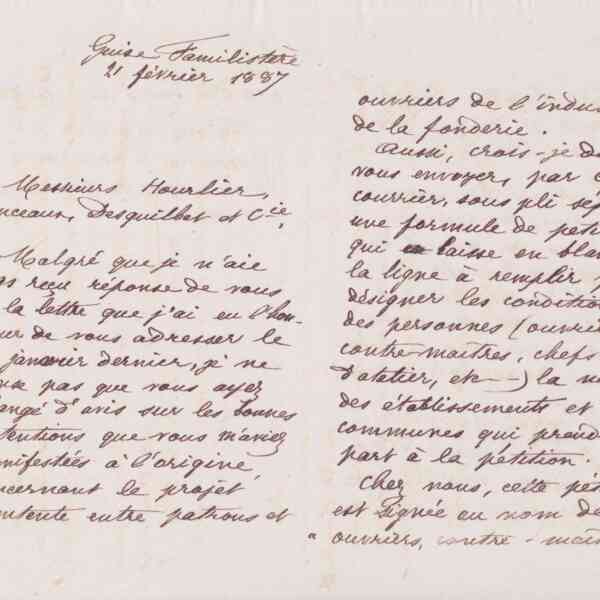 Guise Familistère
21 février 1887
Messieurs Hourlier,
nceaux, Desquilbet et Cie,
Malgré que je n'aie
as reçu réponse de vous
la lettre que j'ai eu l'hon-
ur de vous adresser le
janvier dernier, je ne
pas que vous ayez
angé d'avis sur les bonnes
tentions que vous m'aviez
nifestées à l'origine
ncernant le projet
entente entre patrons et
ouvriers de l'indus
de la fonderie.
Aussi, crois-je de
vous envoyer, par c
courrier, sous pli sép
une formule de péti
qui laisse en blan
la ligne à remplir p
désigner les condition
des personnes (ouvrie
contre-maîtres, chefs
d'atelier, etc—) la n
des établissements et
communes qui prend
part à la pétition.
Chez nous, cette pét
est signée au nom de
" ouvriers, contre-maît